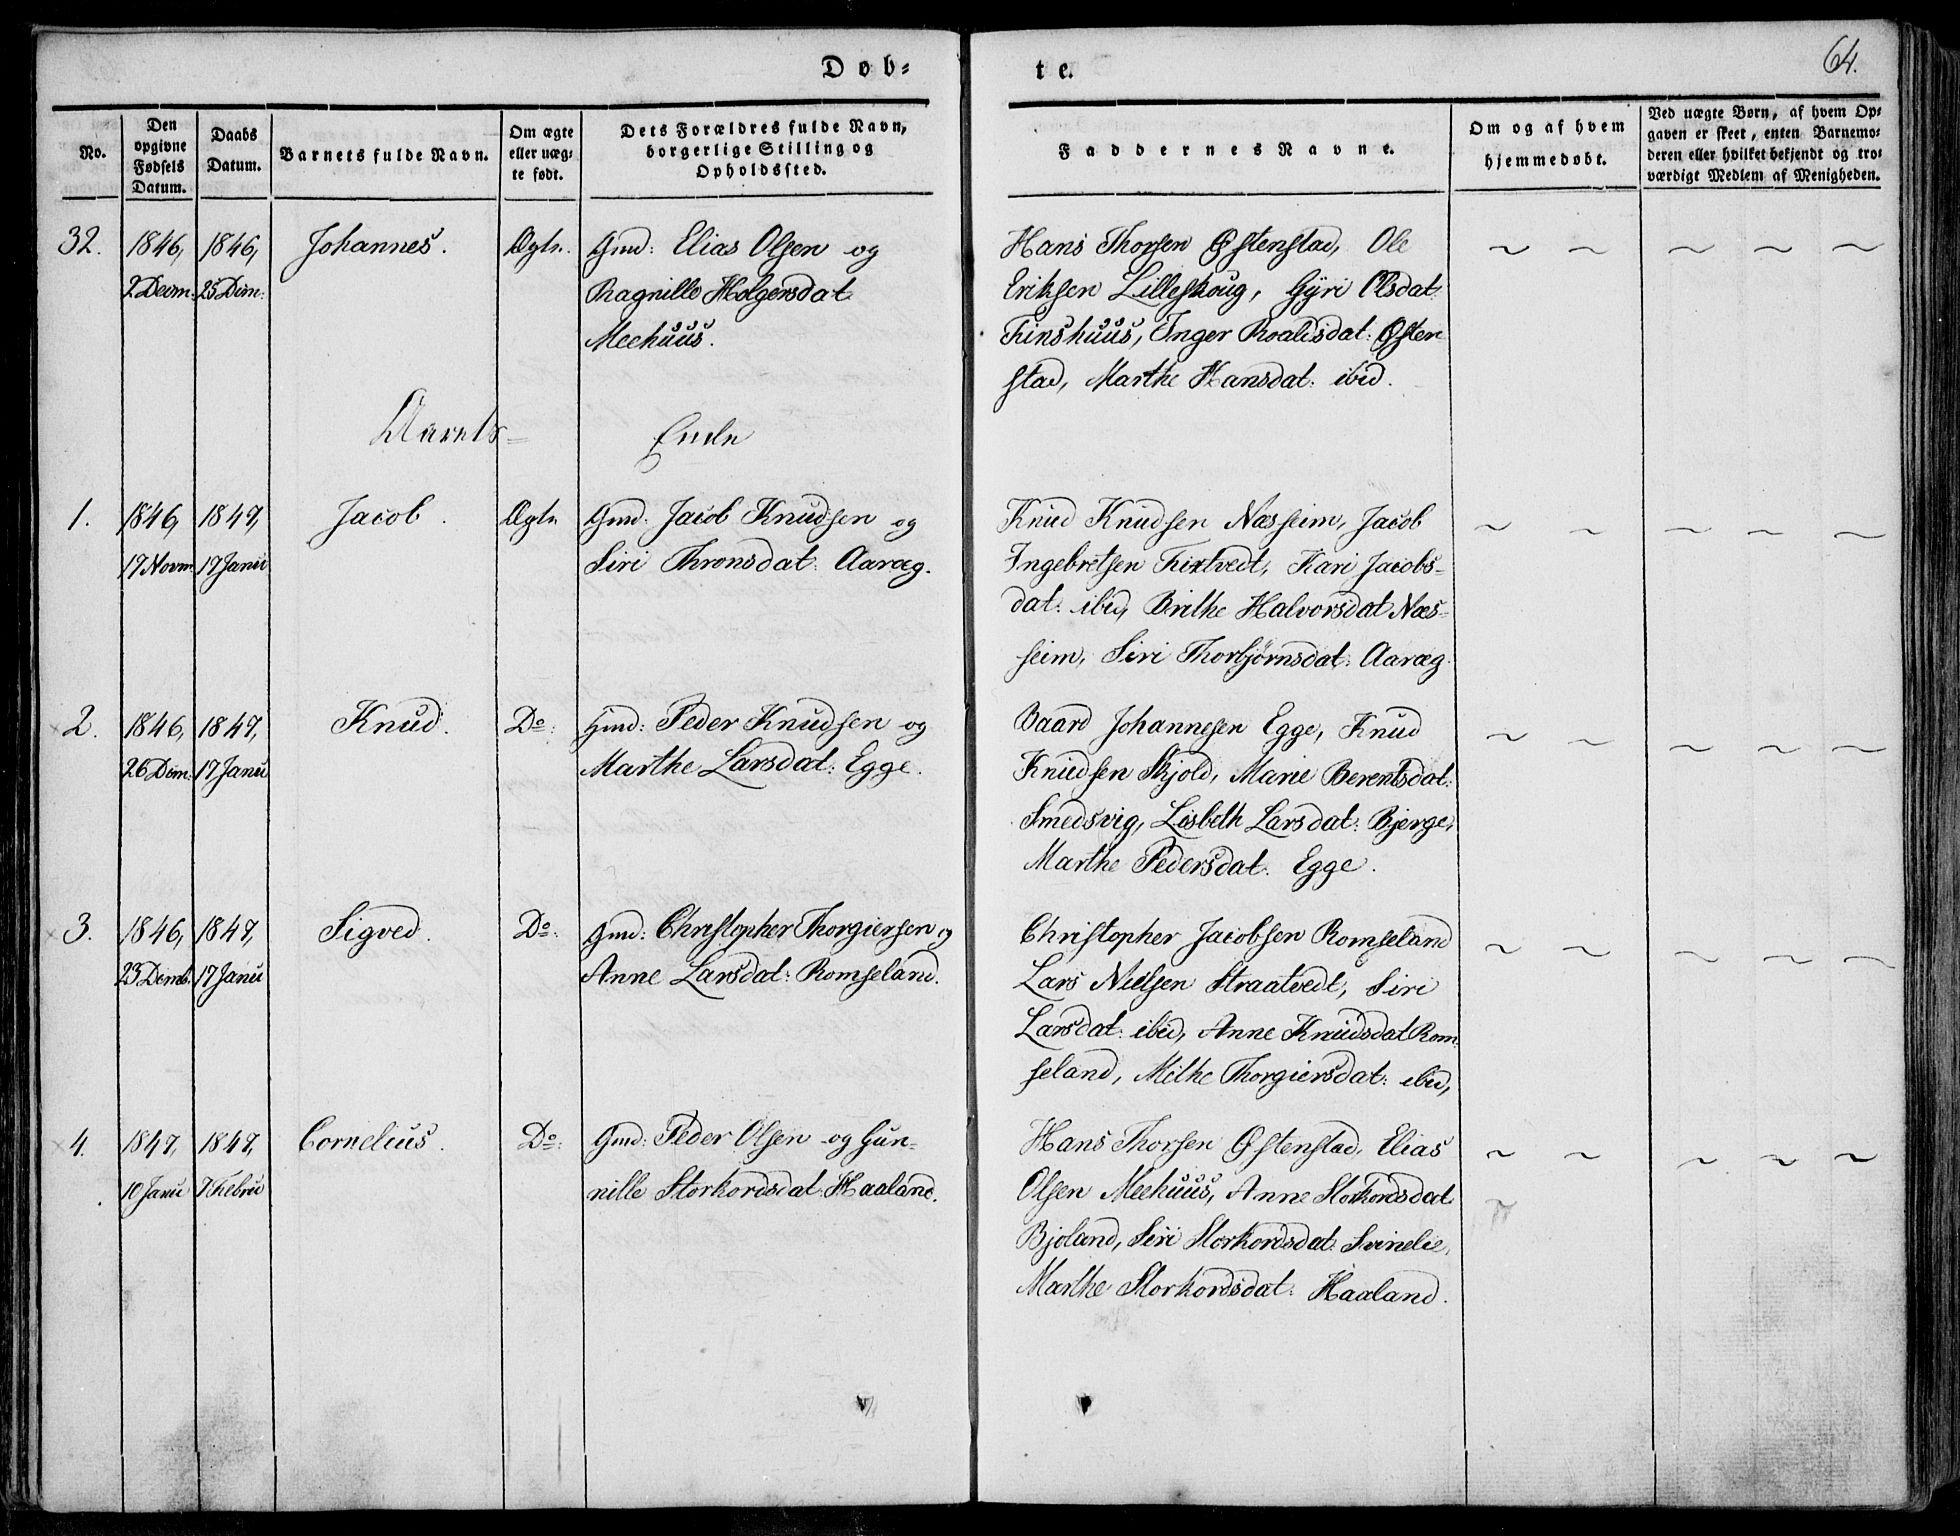 Døb=
te.
64.
No.
Den opgivne Fødsels Datum.
Daabs Datum.
Barnets fulde Navn.
Om ægte eller uæg= te født.
Dets Forældres fulde Navn, borgerlige Stilling og Opholdssted.
Faddernes Navne.
Om og af hvem hjemmedøbt.
Ved uægte Børn, af hvem Op= gaven er skeet, enten Barnemo= deren eller hvilket bekjendt og tro= værdigt Medlem af Menigheden.
32. 1846, 1846, Johannes. Ægte. Gmd: Elias Olsen og
2 Decm: 25 Decm: Ragnille Holgersdat
Meehuus.
Hans Thorsen Østenstad, Ole
Eriksen Lilleskoug, Gyri Olsdat:
Finshuus, Inger Roaldsdat: Østen
stad, Marthe Hansdat: ibid.
Aarets= Ende
1. 1846, 1847, Jacob. Ægte Gmd. Jacob Knudsen og
19 Novm 17 Janu Siri Thronsdat: Aaræg.
Knud Knudsen Næsheim, Jacob
Ingebretsen Fixtvedt, Kari Jacobs=
dat: ibid, Brithe Halvorsdat Næs=
heim, Siri Thorbjørnsdat: Aaræg.
2. 1846, 1847, Knud. Do: Gmd: Peder Knudsen og
26 Dcm: 17 Janu Marthe Larsdat: Egge.
Baard Johannesen Egge, Knud
Knudsen Skjold, Marie Berentsdat:
Smedsvig, Lisbeth Larsdat: Bjerge,
Marthe Pedersdat. Egge.
3. 1846, 1847, Sigved. Do: Gmd: Christopher Thorgiersen og
23 Dcmb. 17 Janu Anne Larsdat: Romseland.
Christopher Jacobsen Romseland
Lars Nielsen Straatvedt, Siri
Larsdat: ibid, Anne Knudsdat Rom=
seland, Methe Thorgiersdat: ibid,
4. 1847, 1847, Cornelius. Do: Gmd: Peder Olsen og Gun=
10 Janu 7 Febru nille Storkordsdat: Haaland.
Hans Thorsen Østenstad, Elias
Olsen Meehuus, Anne Storkordsdat
Bjoland, Siri Storkordsdat. Svinelie,
Marthe Storkordsdat: Haaland.